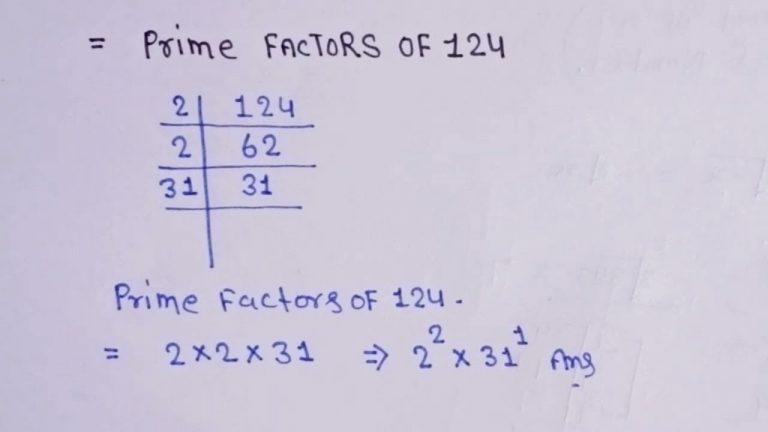 = Prime FACTORS OF 124
2 | 124
2 | 62
31 | 31
Prime Factors OF 124.
= 2×2×31 ⇒ 2² × 31¹ Ans